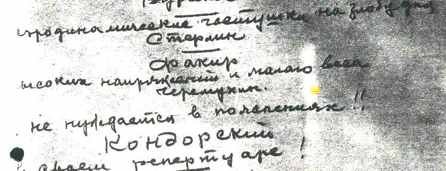 частушки на злобу дня
Стерлин
факир
высоких напряжений и малого веса
Черемухин.
не нуждается в пояснениях!!
Кондорский
в своем репертуаре!